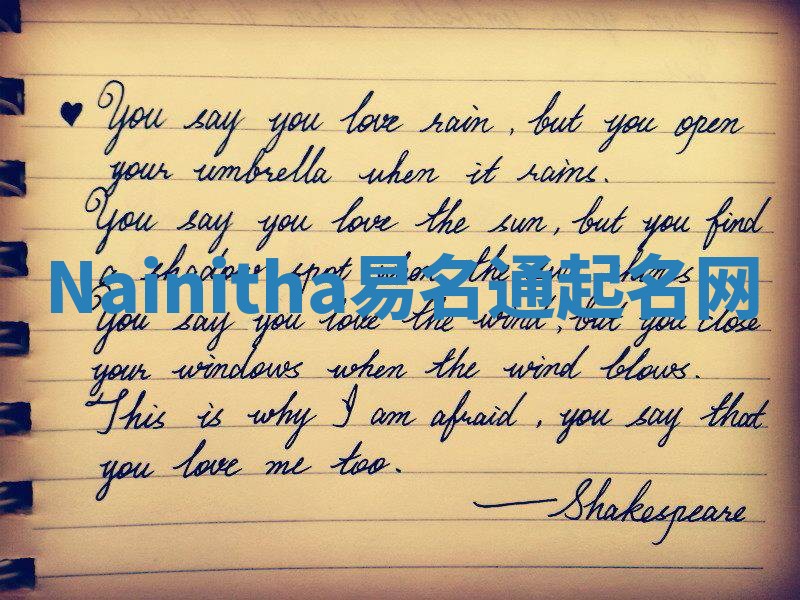 ♥ You say you love rain, but you open
your umbrella when it rains.
You say you love the sun, but you find
a shadow spot when the sun shines
Nainitha易名通起名网
You say you love the wind, but you close
your windows when the wind blows.
This is why I am afraid, you say that
you love me too.
—Shakespeare